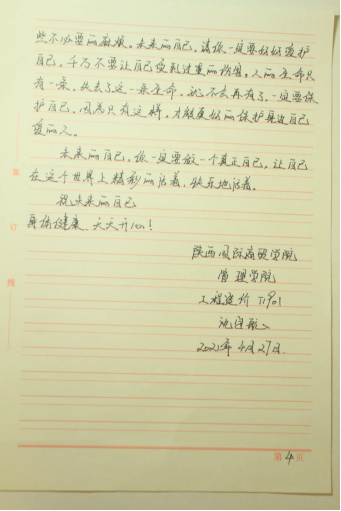 些不必要的麻烦。未来的自己,请你一定要好好爱护
自己,千万不要让自己受到过重的伤害,人的生命只
有一条,失去了这一条生命,就不会再有了,一定要保
护自己,因为只有这样,才能更好的保护身边自己
爱的人。
未来的自己,你一定要做一个真正自己,让自己
在这个世界上精彩的活着,快乐地活着。
祝未来的自己
身体健康、天天开心!
陕西国际商贸学院
管理学院
工程造价 1901
2021年4月27日.
订
线
第4页